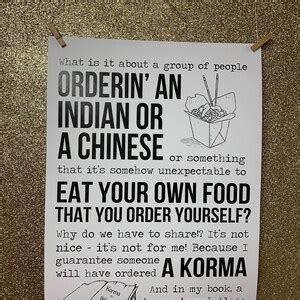 What is it about a group of people
ORDERIN' AN
INDIAN OR
A CHINESE
or something
that it's somehow unexpectable to
EAT YOUR OWN FOOD
THAT YOU ORDER YOURSELF?
Why do we have to share? It's not
nice - it's not for me! Because I
guarantee someone
will have ordered A KORMA
Korma
And in my book, a